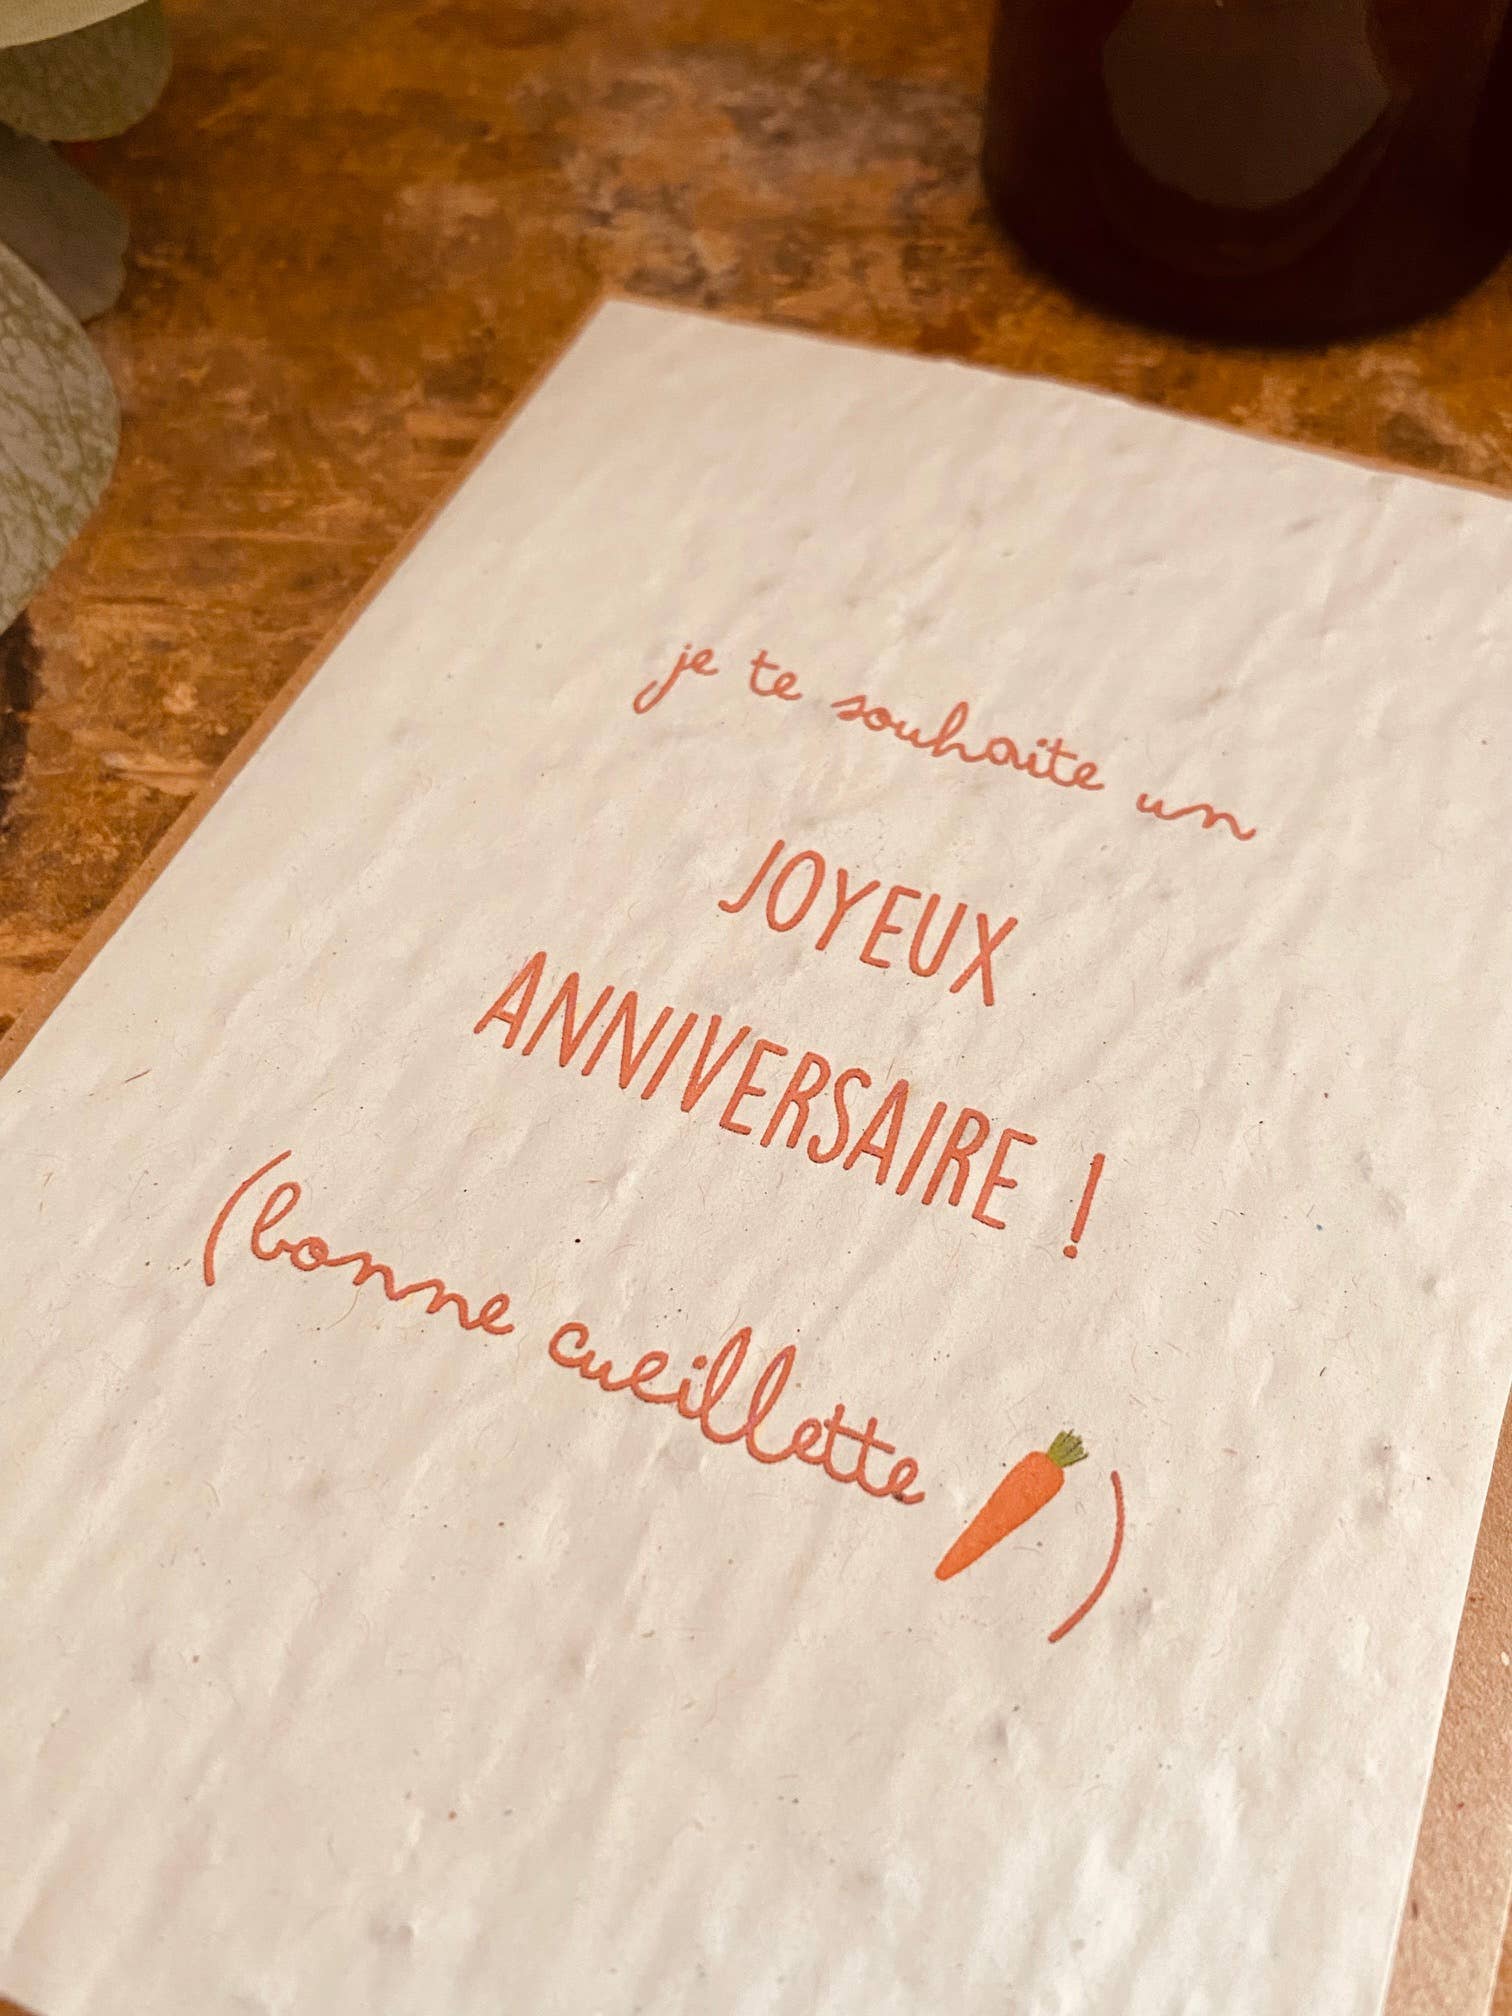 je te souhaite un
JOYEUX
ANNIVERSAIRE !
(bonne cueillette )